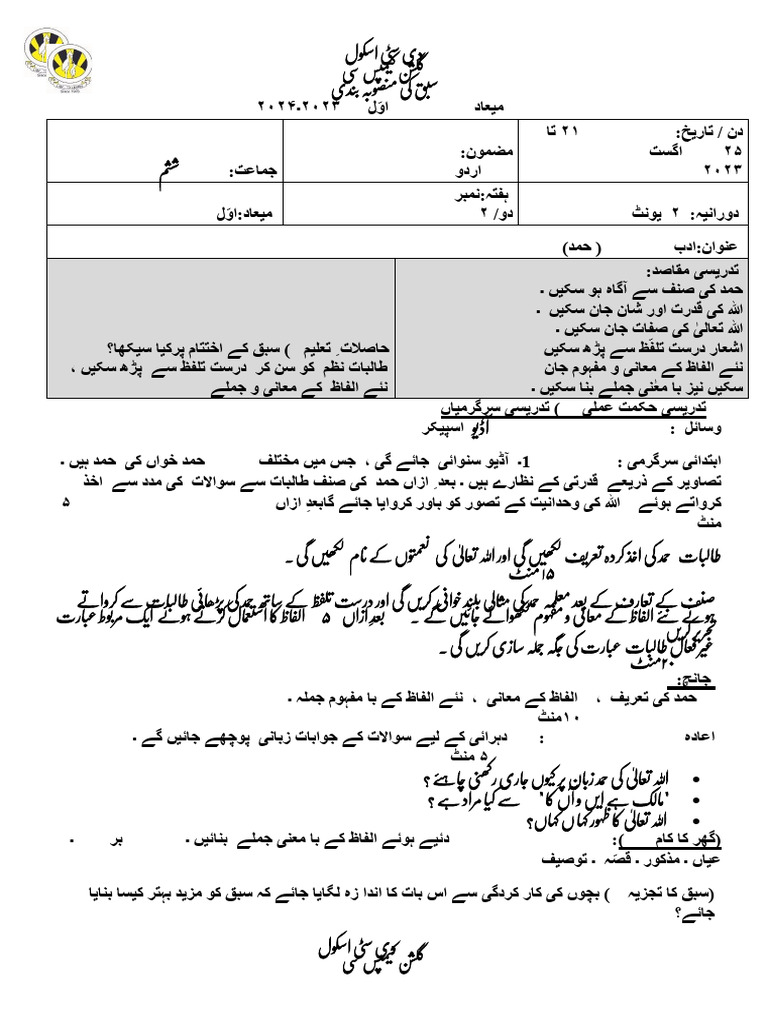 دی سٹی اسکول
گلشن کیمپس سی
سبق کی منصوبہ بندی
میعاد اوّل ۲۰۲۳-۲۰۲۴
دن / تاریخ: ۲۱ تا
۲۵ اگست
۲۰۲۳
مضمون:
اردو
جماعت: ششم
دورانیہ: ۲ یونٹ
ہفتہ:نمبر
دو/ ۲
میعاد:اوّل
عنوان:ادب ( حمد)
تدریسی مقاصد:
حمد کی صنف سے آگاہ ہو سکیں ۔
اللہ کی قدرت اور شان جان سکیں ۔
اللہ تعالیٰ کی صفات جان سکیں ۔
اشعار درست تلفّظ سے پڑھ سکیں
نئے الفاظ کے معانی و مفہوم جان
سکیں نیز با معنٰی جملے بنا سکیں ۔
حاصلاتِ تعلیم ) سبق کے اختتام پرکیا سیکھا؟
طالبات نظم کو سن کر درست تلفظ سے پڑھ سکیں ،
نئے الفاظ کے معانی و جملے
تدریسی حکمت عملی ) تدریسی سرگرمیاں
وسائل : آڈیو اسپیکر
ابتدائی سرگرمی : 1۔ آڈیو سنوائی جائے گی ، جس میں مختلف حمد خواں کی حمد ہیں ۔
تصاویر کے ذریعے قدرتی کے نظارے ہیں ۔ بعد ِ ازاں حمد کی صنف طالبات سے سوالات کی مدد سے اخذ
کرواتے ہوئے اللہ کی وحدانیت کے تصور کو باور کروایا جائے گابعدِ ازاں ۵
منٹ
طالبات حمد کی اخذ کردہ تعریف لکھیں گی اور اللہ تعالیٰ کی نعمتوں کے نام لکھیں گی ۔
۱۵منٹ
صنف کے تعارف کے بعد معلمہ حمد کی مثالی بلند خوانی کریں گی اور درست تلفظ کے ساتھ حمد کی پڑھائی طالبات سے کرواتے
ہوئے نئے الفاظ کے معانی و مفہوم لکھوائے جائیں گے ۔ بعدِازاں ۵ الفاظ کا استعمال کرتے ہوئے ایک مربوط عبارت
تحریر کریں
غیر فعال طالبات عبارت کی جگہ جملہ سازی کریں گی ۔
۲۰منٹ
جانچ:
حمد کی تعریف ، الفاظ کے معانی ، نئے الفاظ کے با مفہوم جملہ ۔
۱۰منٹ
اعادہ : دہرائی کے لیے سوالات کے جوابات زبانی پوچھے جائیں گے ۔
۵ منٹ
• اللہ تعالیٰ کی حمد زبان پر کیوں جاری رکھنی چاہئے ؟
• 'مالک ہے اِیں و آں کا' سے کیا مراد ہے ؟
• اللہ تعالیٰ کا ظہور کہاں کہاں؟
(گھر کا کام ): دئیے ہوئے الفاظ کے با معنی جملے بنائیں ۔ بر ۔
عیاں ۔ مذکور ۔ قصّہ ۔ توصیف
(سبق کا تجزیہ ) بچوں کی کار کردگی سے اس بات کا اندا زہ لگایا جائے کہ سبق کو مزید بہتر کیسا بنایا
جائے؟
دی سٹی اسکول
گلشن کیمپس سی